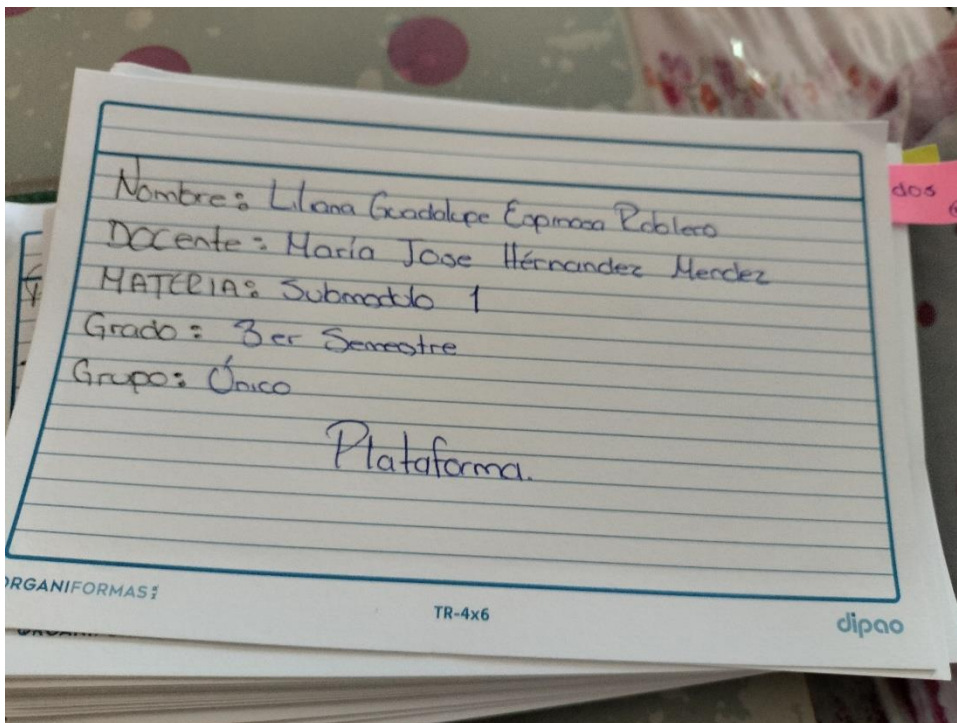 Nombre: Liliana Guadalupe Espinosa Roblero
Docente: María Jose Hérnandez Mendez
MATERIA: Submodulo 1
Grado: 3er Semestre
Grupo: Único
Plataforma.
dos
ORGANIFORMAS
TR-4x6
dipao